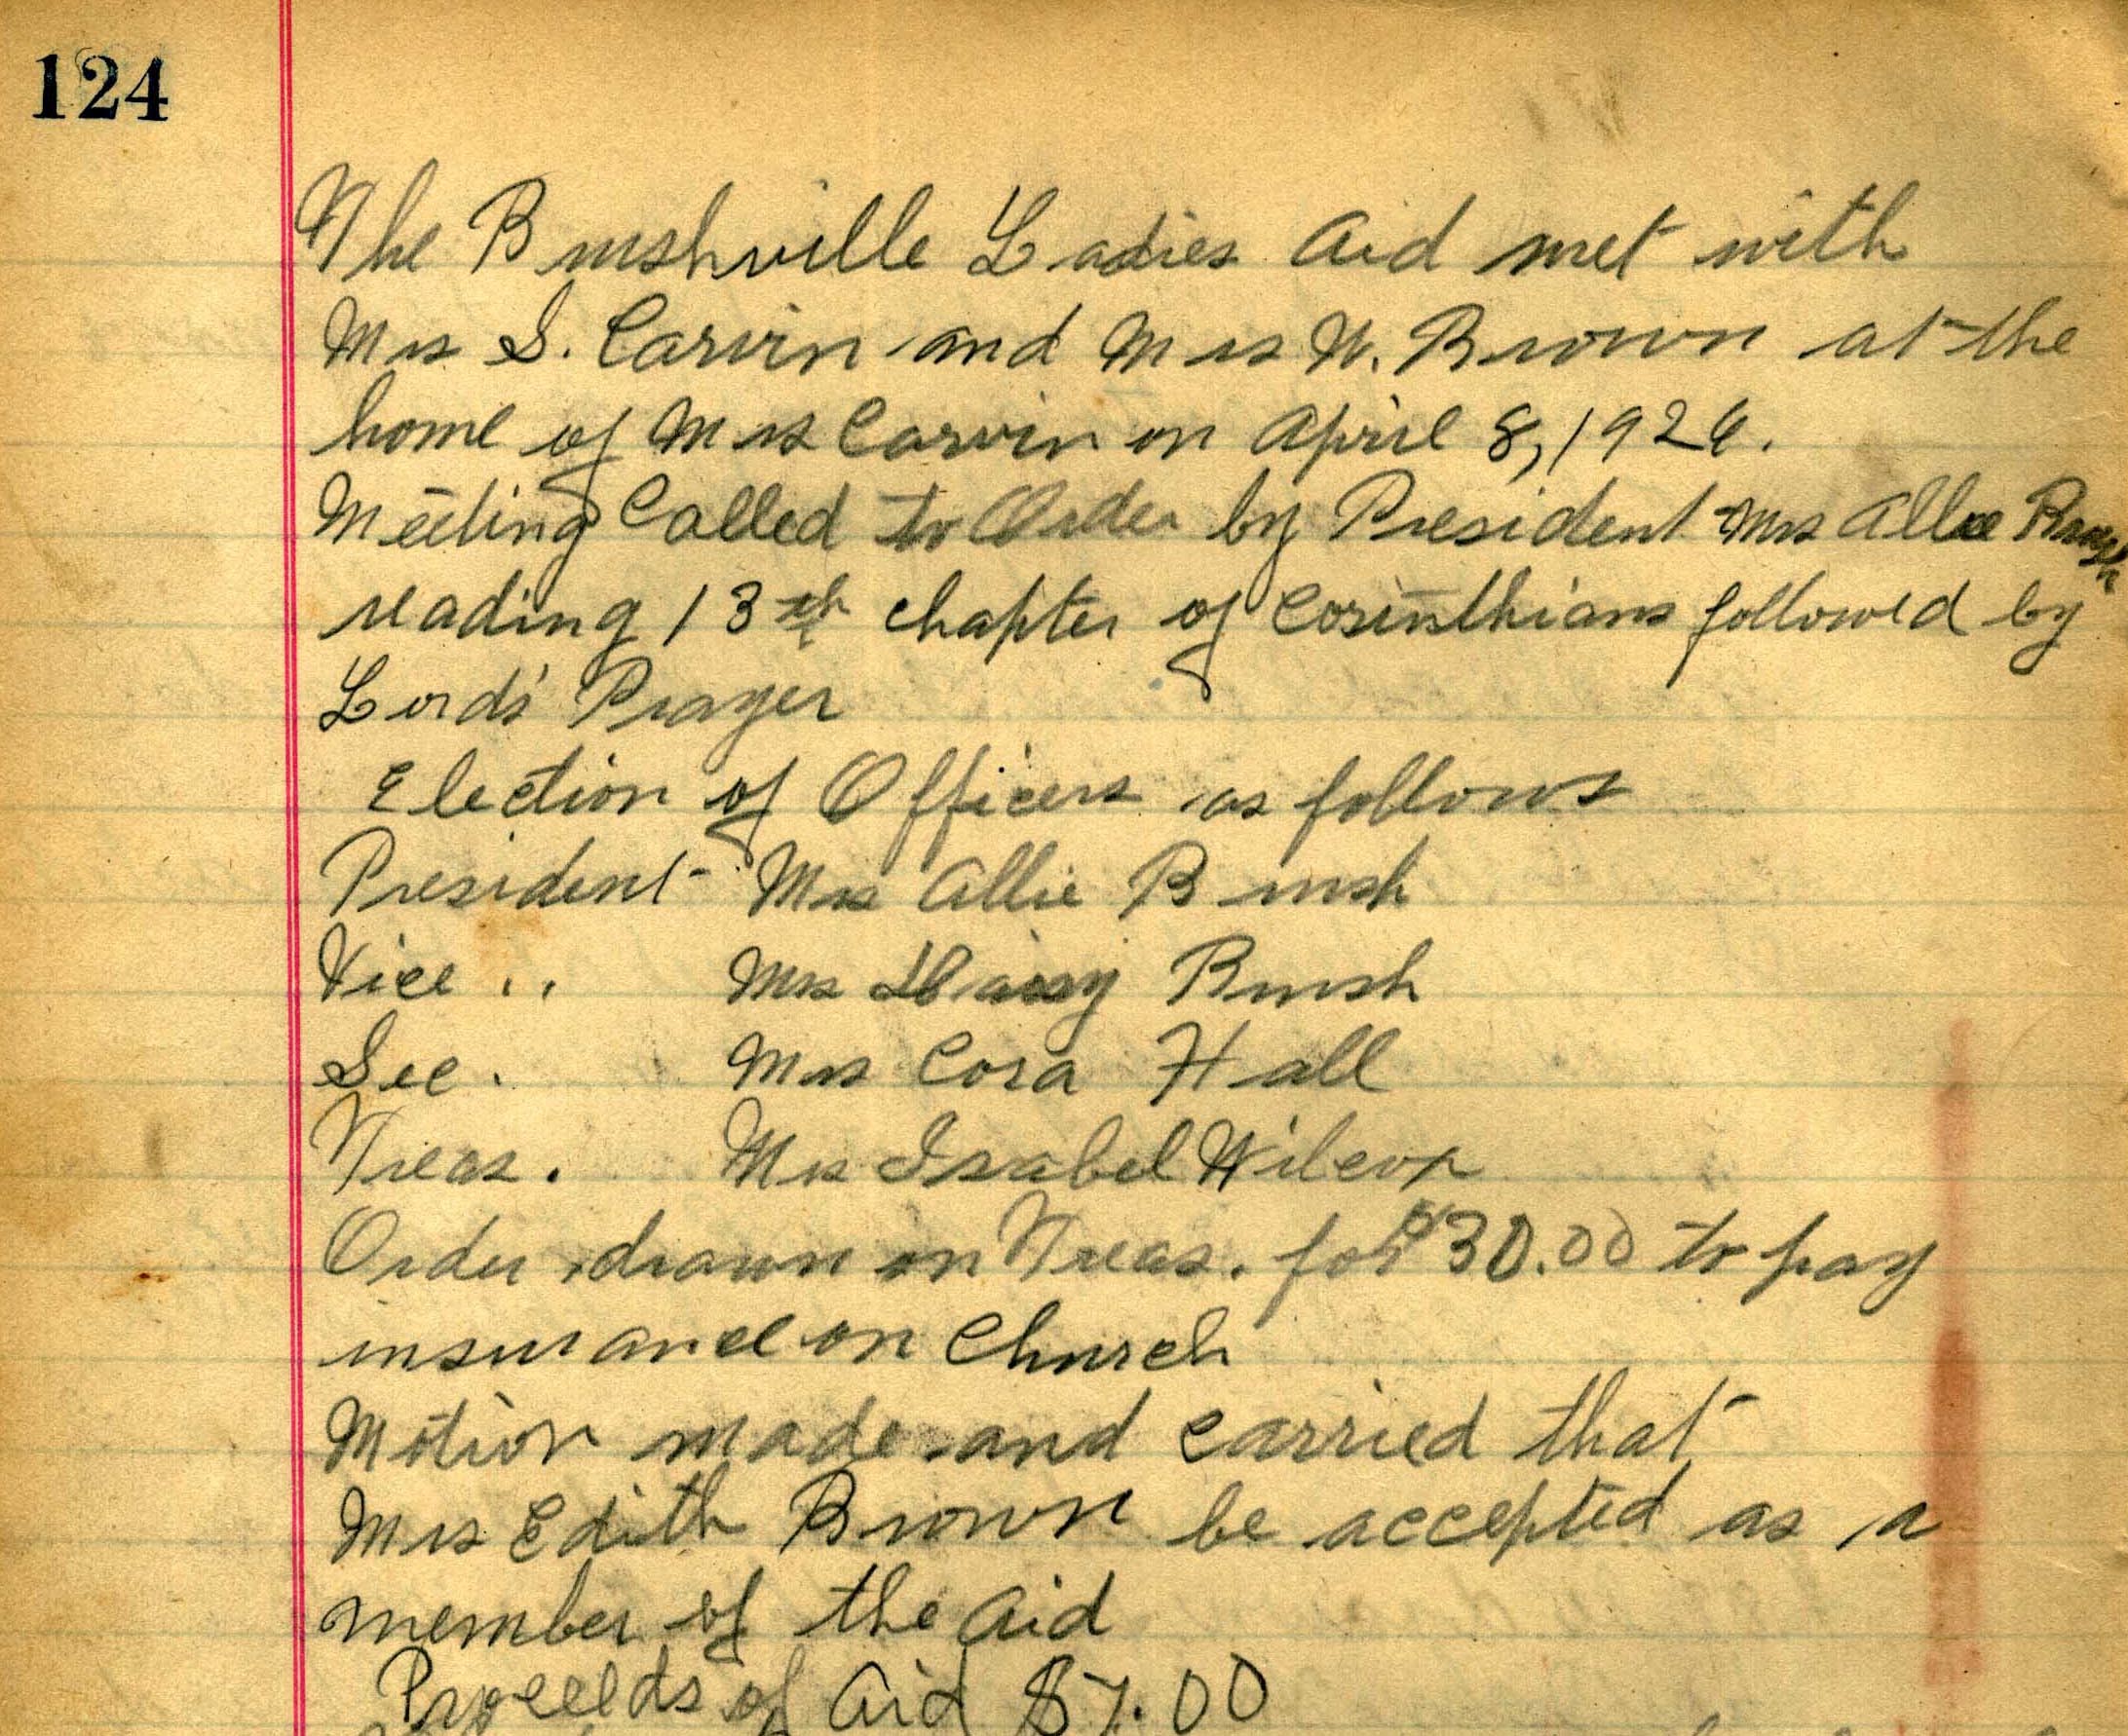 124
The Brushville Ladies Aid met with
Mrs S. Carvin and Mrs N. Brown at the
home of Mrs Carvin on April 8, 1926.
Meeting Called to Order by President Mrs Allie Brush
reading 13th chapter of Corinthians followed by
Lords' Prayer
Election of Officers as follows
President - Mrs Allie Brush
Vice " Mrs Daisy Brush
Sec. Mrs Cora Hall
Treas. Mrs Isabel Wilcox
Order drawn on Treas. for $30.00 to pay
insurance on Church
Motion made and carried that
Mrs Edith Brown be accepted as a
member of the Aid
Proceeds of Aid $7.00